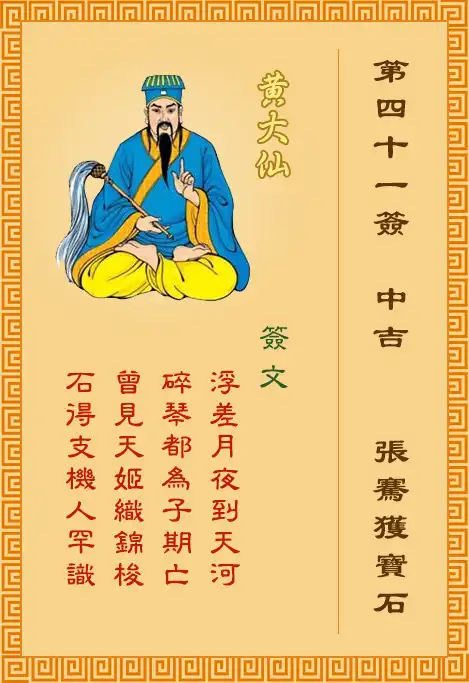 第四十一簽 中吉 張騫獲寶石
黃大仙
簽文
浮差月夜到天河
碎琴都為子期亡
曾見天姬織錦梭
石得支機人罕識